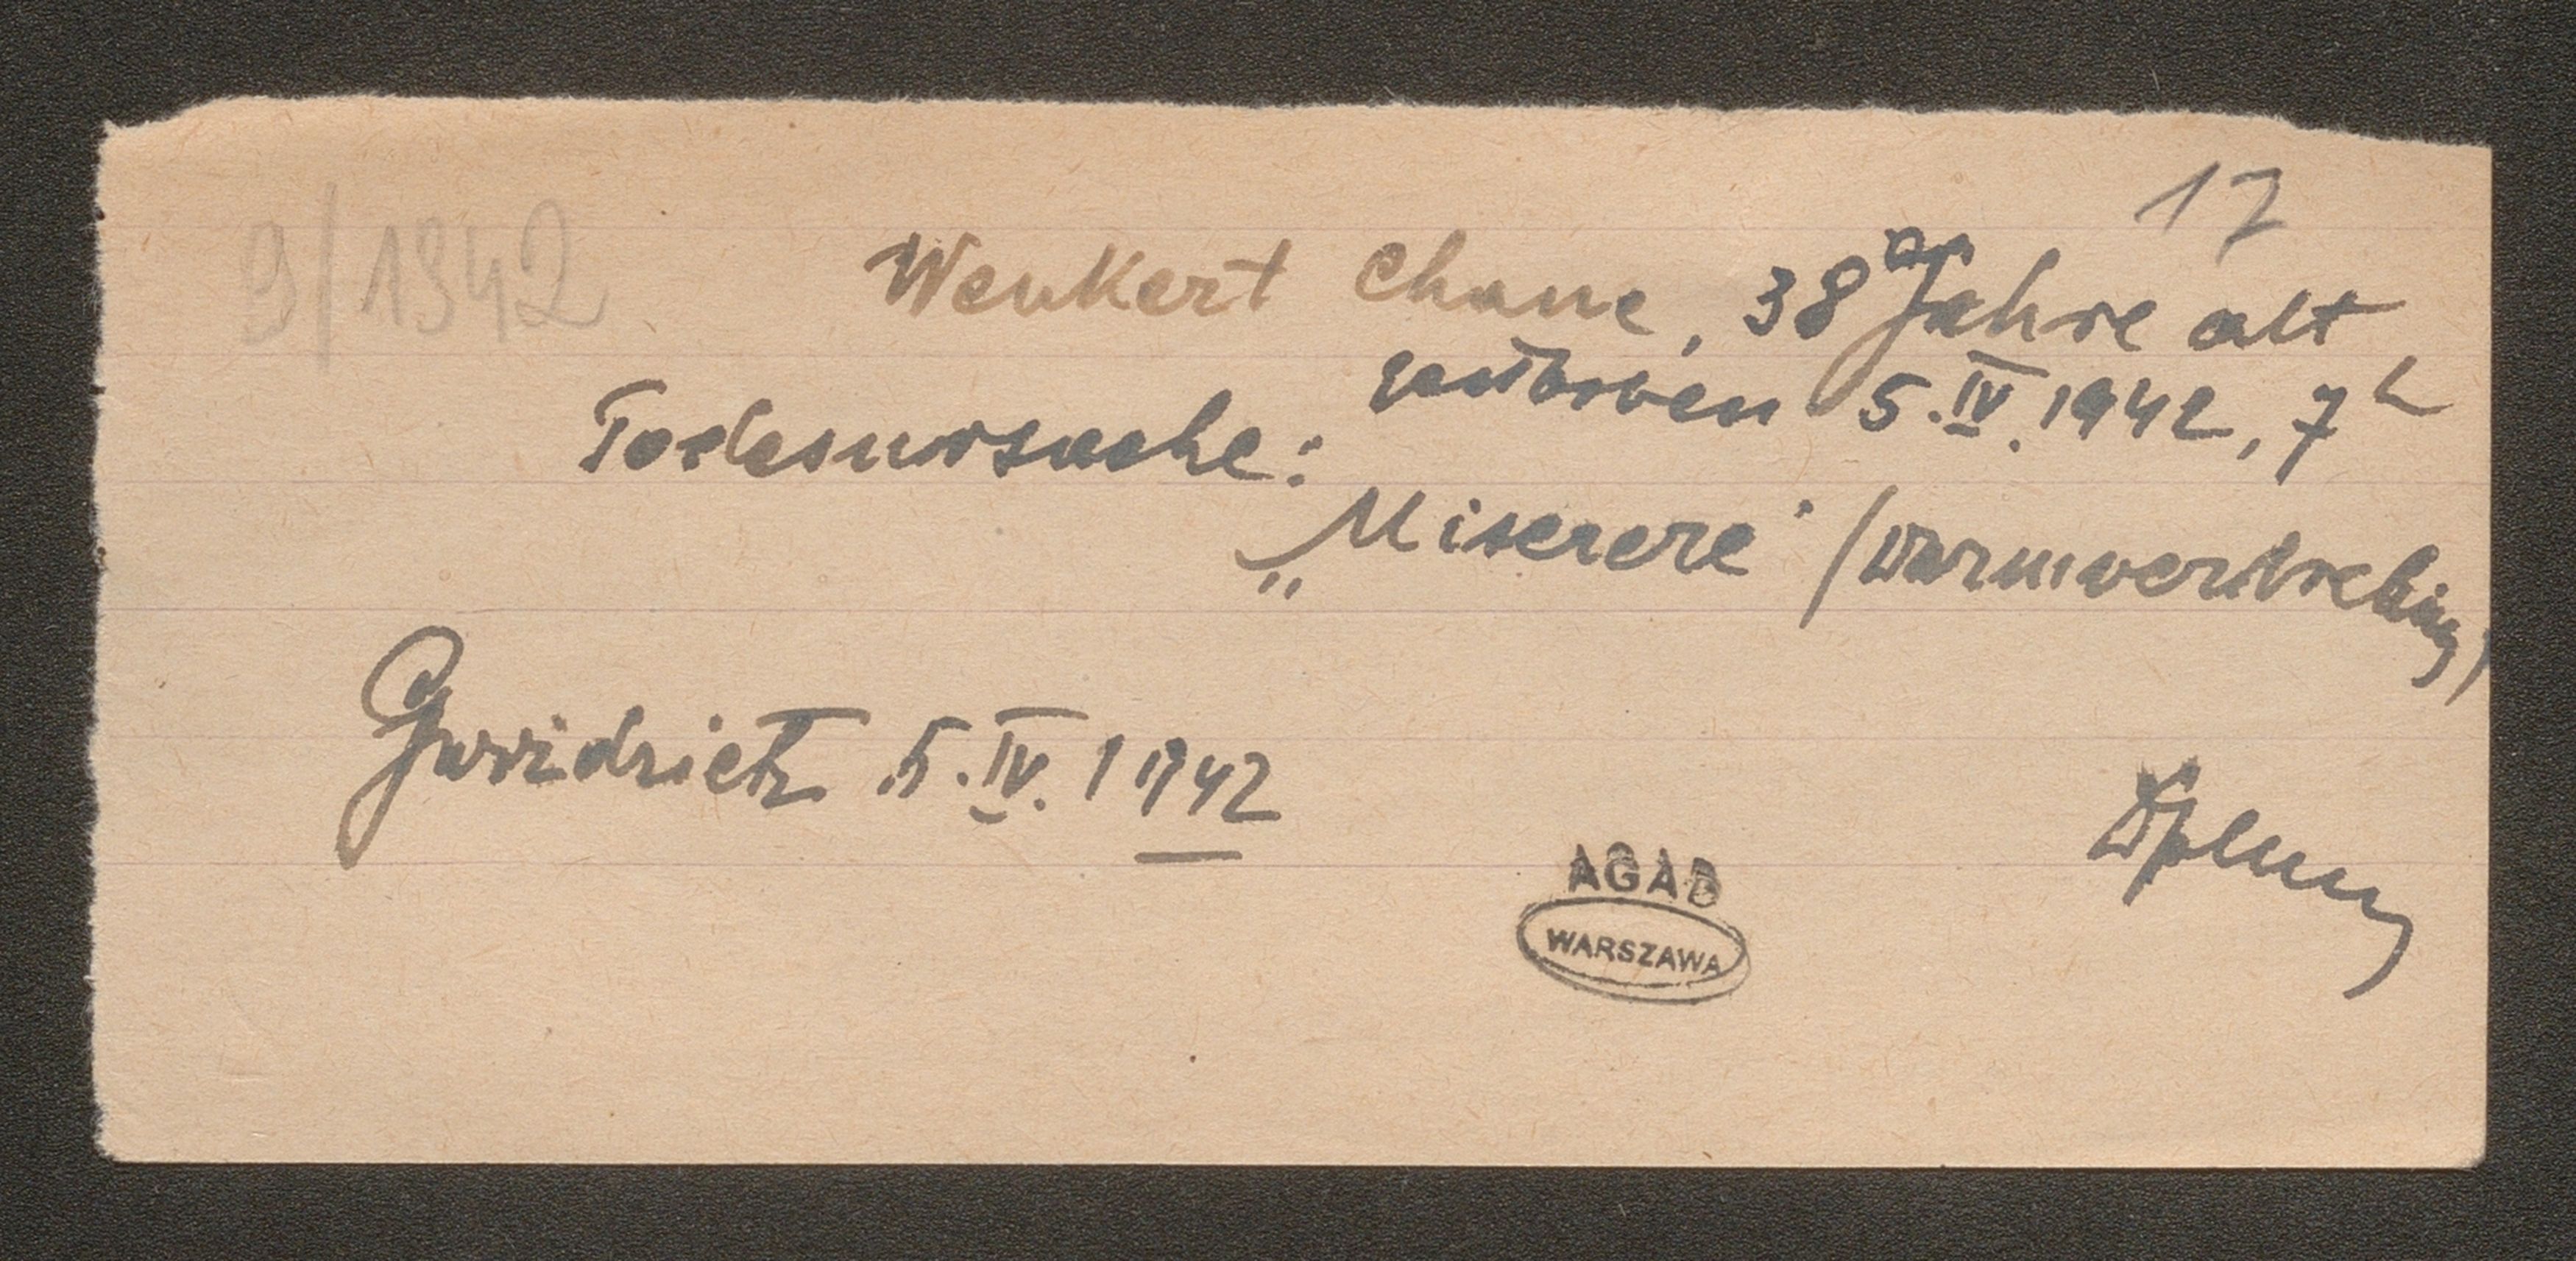 17
9/1942
Wenkert Chane, 38 Jahre alt
gestorben 5.IV.1942, 7h
Todesursache:
„Miserere" (Darmverdrehung)
Gwizdrietz 5.IV.1942
AGAD
WARSZAWA